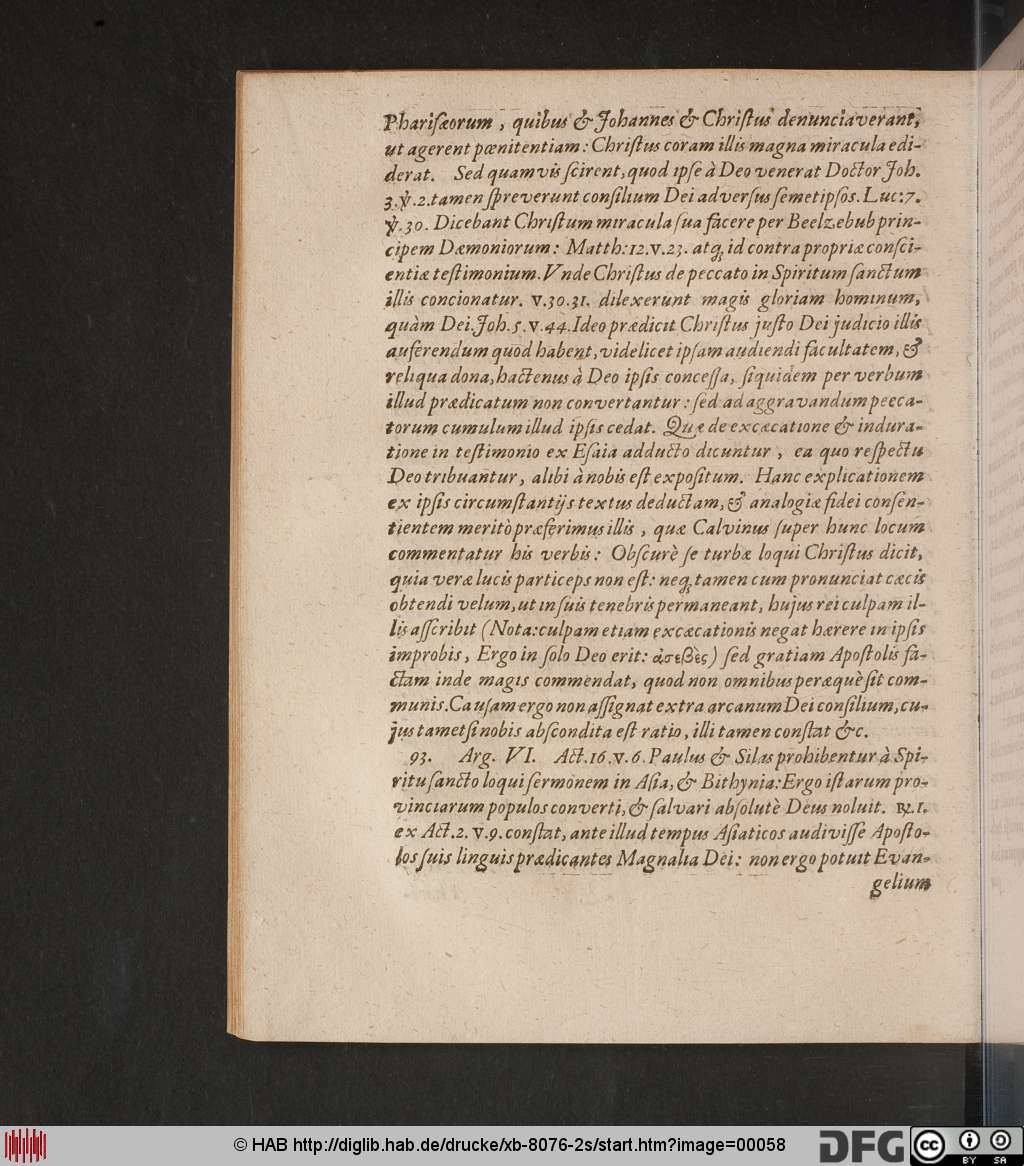 Phariſæorum, quibus & Johannes & Chriſtus denunciaverant,
ut agerent pœnitentiam: Chriſtus coram illis magna miracula edi-
derat. Sed quamvis ſcirent, quod ipſe à Deo venerat Doctor Joh.
3. ℣. 2. tamen ſpreverunt conſilium Dei adverſus ſemetipſos. Luc: 7.
℣. 30. Dicebant Chriſtum miracula ſua facere per Beelzebub prin-
cipem Dæmoniorum: Matth: 12. v. 23. atq; id contra propriæ conſci-
entiæ teſtimonium. Vnde Chriſtus de peccato in Spiritum ſanctum
illis concionatur. v. 30. 31. dilexerunt magis gloriam hominum,
quàm Dei. Joh. 5. v. 44. Ideo prædicit Chriſtus juſto Dei judicio illis
auferendum quod habent, videlicet ipſam audiendi facultatem, &
reliqua dona, hactenus à Deo ipſis conceſſa, ſiquidem per verbum
illud prædicatum non convertantur: ſed ad aggravandum peeca-
torum cumulum illud ipſis cedat. Quæ de excæcatione & indura-
tione in teſtimonio ex Eſaia adducto dicuntur, ea quo reſpectu
Deo tribuantur, alibi à nobis eſt expoſitum. Hanc explicationem
ex ipſis circumſtantijs textus deductam, & analogiæ fidei conſen-
tientem meritò præferimus illis, quæ Calvinus ſuper hunc locum
commentatur his verbis: Obſcurè ſe turbæ loqui Chriſtus dicit,
quia veræ lucis particeps non eſt: neq; tamen cum pronunciat cæcis
obtendi velum, ut in ſuis tenebris permaneant, hujus rei culpam il-
lis aſſcribit (Nota: culpam etiam excæcationis negat hærere in ipſis
improbis, Ergo in ſolo Deo erit: ἀσεβὲς) ſed gratiam Apoſtolis fa-
ctam inde magis commendat, quod non omnibus peræquè ſit com-
munis. Cauſam ergo non aſſignat extra arcanum Dei conſilium, cu-
jus tametſi nobis abſcondita eſt ratio, illi tamen conſtat &c.
93. Arg. VI. Act. 16. v. 6. Paulus & Silas prohibentur à Spi-
ritu ſancto loqui ſermonem in Aſia, & Bithynia: Ergo iſtarum pro-
vinciarum populos converti, & ſalvari abſolutè Deus noluit. ℞. 1.
ex Act. 2. v. 9. conſtat, ante illud tempus Aſiaticos audiviſſe Apoſto-
los ſuis linguis prædicantes Magnalia Dei: non ergo potuit Evan-
gelium
© HAB http://diglib.hab.de/drucke/xb-8076-2s/start.htm?image=00058
DFG
cc BY SA